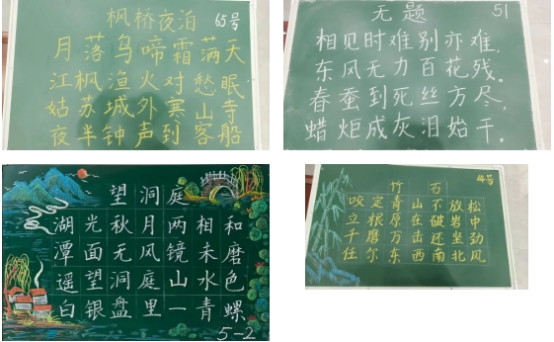 枫桥夜泊 65号
月落乌啼霜满天
江枫渔火对愁眠
姑苏城外寒山寺
夜半钟声到客船
无题 51
相见时难别亦难,
东风无力百花残。
春蚕到死丝方尽,
蜡炬成灰泪始干。
望洞庭
湖光秋月两相和
潭面无风镜未磨
遥望洞庭山水色
白银盘里一青螺
5-2
竹石
咬定青山不放松
立根原在破岩中
千磨万击还坚劲
任尔东西南北风